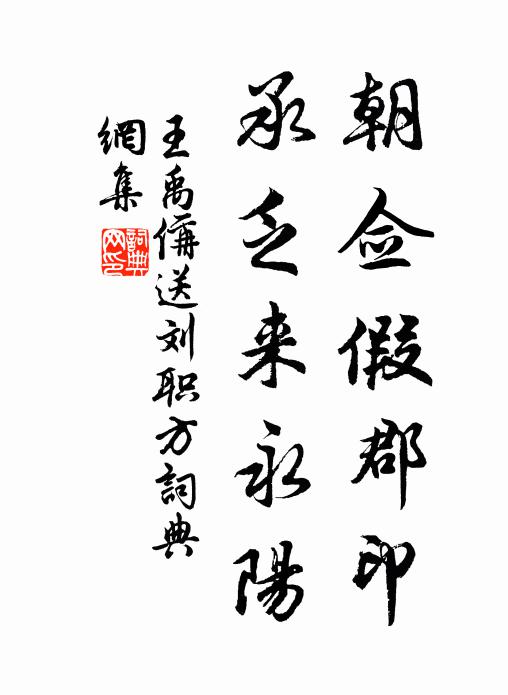 朝佥假郡印
承乏来永陽
王禹偁送刘职方詞典
網集
詞典
网印